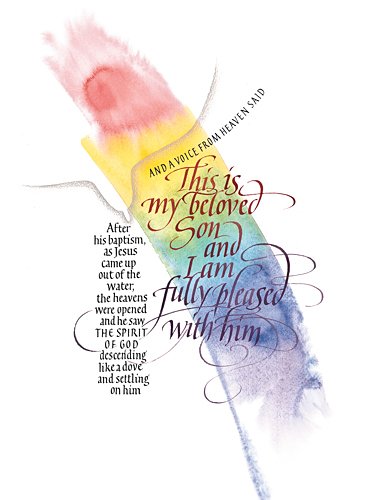 After
his baptism,
as Jesus
came up
out of the
water,
the heavens
were opened
and he saw
THE SPIRIT
OF GOD
descending
like a dove
and settling
on him
AND A VOICE FROM HEAVEN SAID
This is
my beloved
Son
and
I am
fully pleased
with him